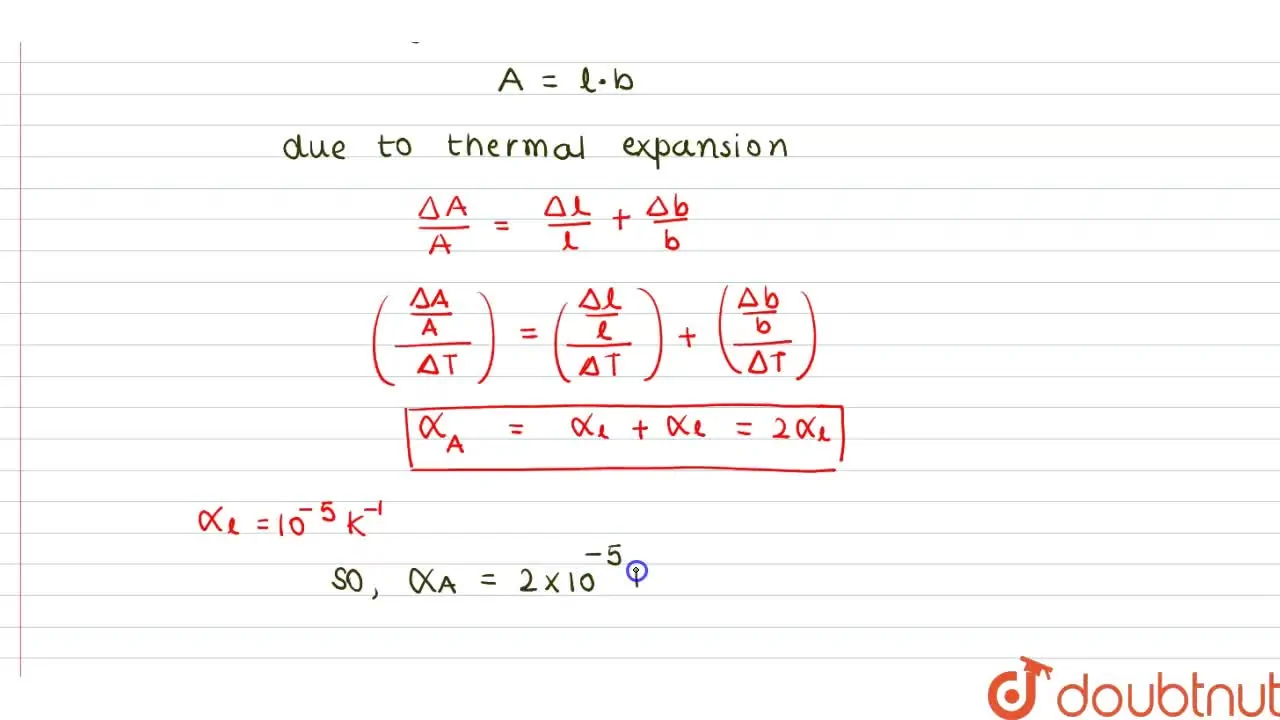 A = l·b
due to thermal expansion
ΔA/A = Δl/l + Δb/b
((ΔA/A)/ΔT) = ((Δl/l)/ΔT) + ((Δb/b)/ΔT)
α_A = α_l + α_l = 2α_l
α_l = 10⁻⁵ K⁻¹
so, α_A = 2×10⁻⁵
doubtnut